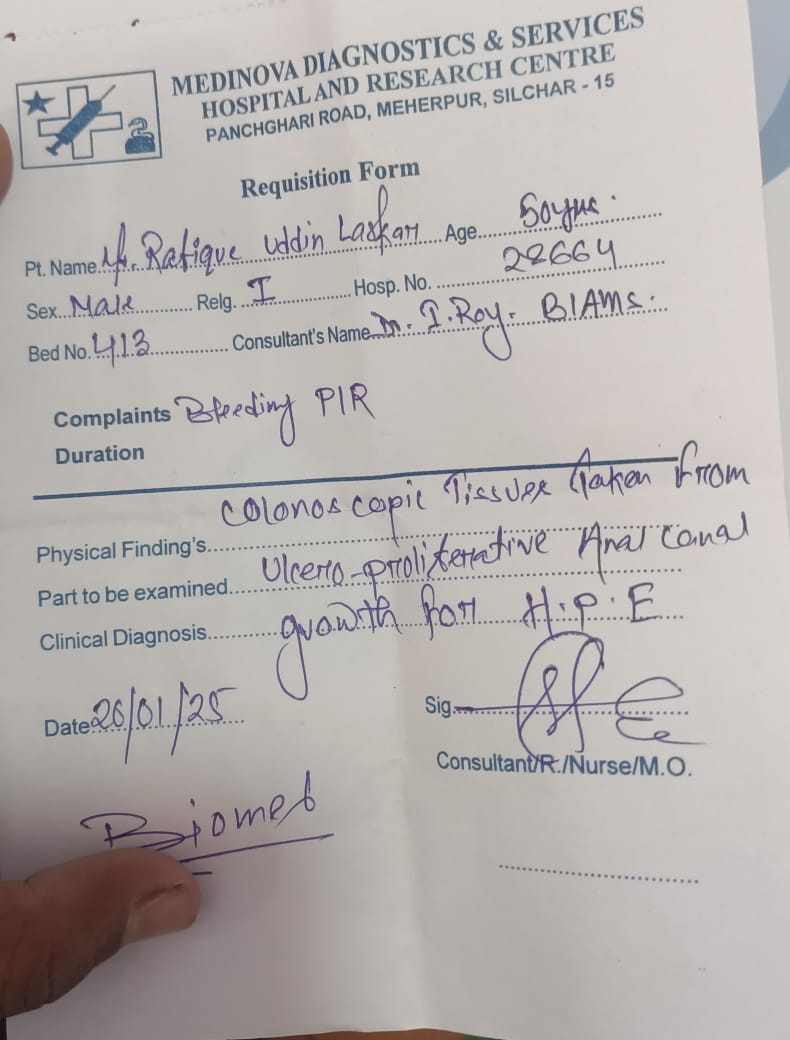 MEDINOVA DIAGNOSTICS & SERVICES
HOSPITAL AND RESEARCH CENTRE
PANCHGHARI ROAD, MEHERPUR, SILCHAR - 15
Requisition Form
Pt. Name Mr. Rafique Uddin Laskar Age 50yrs.
Sex Male Relg. I Hosp. No. 28664
Bed No. 413 Consultant's Name Dr. I. Roy. BIAMS.
Complaints Bleeding P/R
Duration
Colonoscopic Tissues taken from
Physical Finding's
Ulcero-proliferative Anal Canal
Part to be examined
growth for H.P.E
Clinical Diagnosis
Date 26/01/25
Sig.
Consultant/R./Nurse/M.O.
Biomed